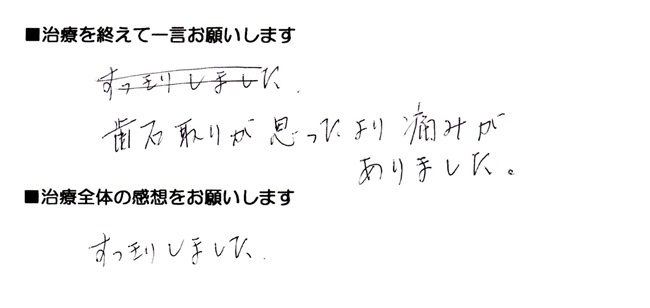 ■治療を終えて一言お願いします
すっきりしました.
歯石取りが思ったより痛みが
ありました。
■治療全体の感想をお願いします
すっきりしました.